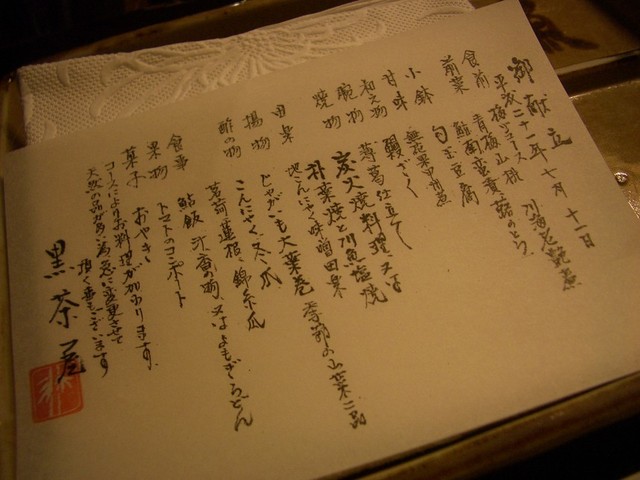 御献立
平成二十一年七月十一日
食前 梅ジュース
前菜 青梅 山桃 川海老艶煮
小鉢 旬玉豆腐
甘味 無花果甲州煮
和え物 鰻ざく
椀物 蓴葛仕立て
焼物 炭火焼料理 又は
朴葉焼と川魚塩焼
田楽 地こんにゃく味噌田楽 季節の山菜二品
揚物 じゃがいも大葉巻
こんにゃく 冬瓜
酢の物 茗荷 蓮根 錦糸瓜
食事 鮎飯 汁 香の物 又はよもぎうどん
果物 トマトのコンポート
菓子 おやき
コースによりお料理が加わります。
天然の品が多い為 急に変更させて
頂く事もございます
黒茶屋